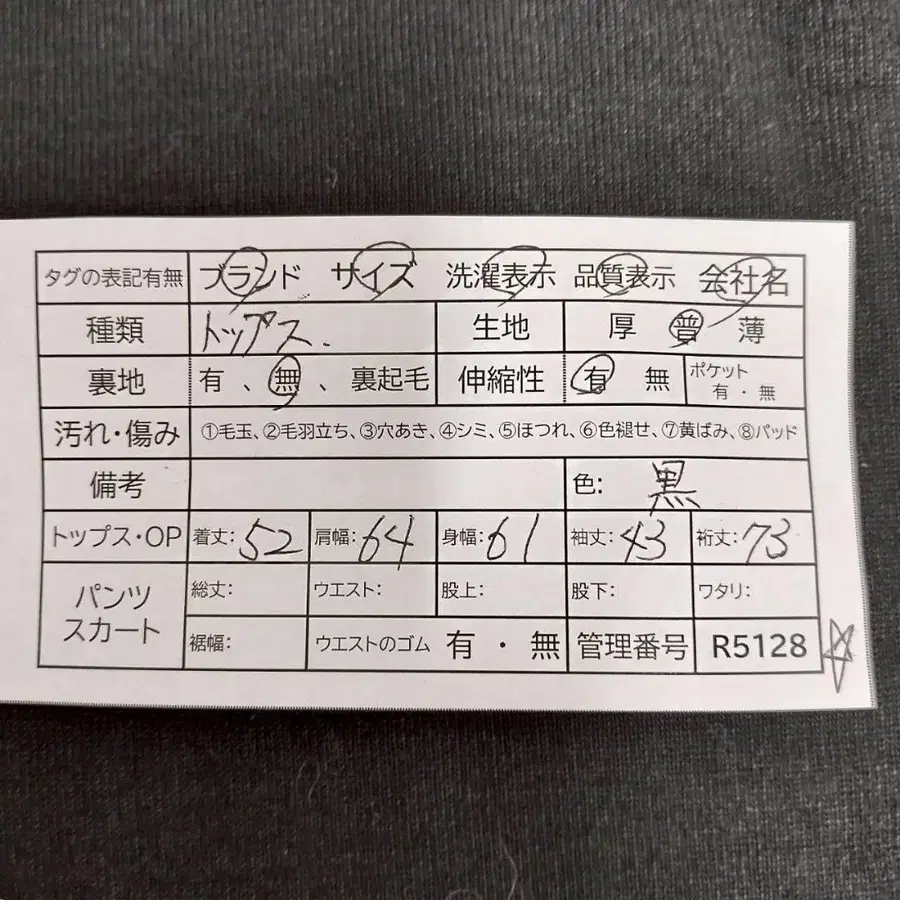 タグの表記有無 ブランド サイズ 洗濯表示 品質表示 会社名
種類 トップス. 生地 厚 普 薄
裏地 有 、無 、裏起毛 伸縮性 有 無 ポケット 有・無
汚れ・傷み ①毛玉、②毛羽立ち、③穴あき、④シミ、⑤ほつれ、⑥色褪せ、⑦黄ばみ、⑧パッド
備考 色: 黒
トップス・OP 着丈:52 肩幅:64 身幅:61 袖丈:43 裄丈:73
パンツ スカート 総丈: ウエスト: 股上: 股下: ワタリ:
裾幅: ウエストのゴム 有・無 管理番号 R5128